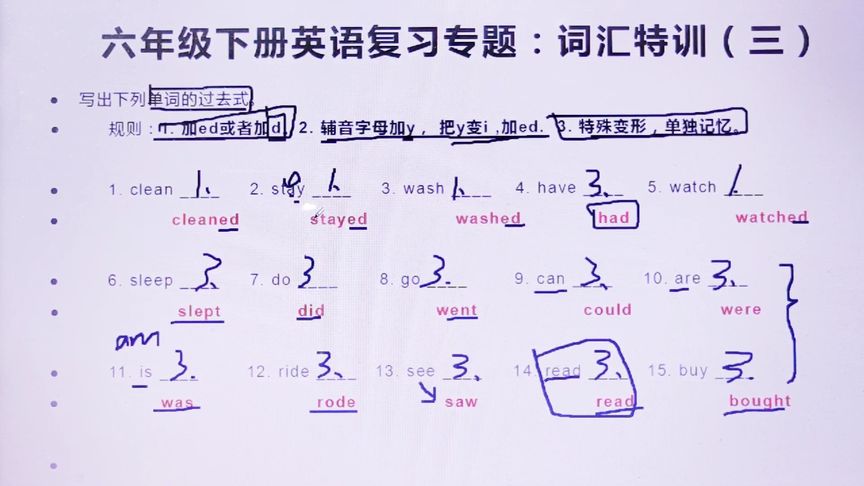 六年级下册英语复习专题：词汇特训（三）
写出下列单词的过去式。
规则：1. 加ed或者加d. 2. 辅音字母加y，把y变i,加ed. 3. 特殊变形，单独记忆。
1. clean 1. 2. stay 1. 3. wash 1. 4. have 3. 5. watch 1.
cleaned stayed washed had watched
6. sleep 3. 7. do 3 8. go 3. 9. can 3. 10. are 3.
slept did went could were
am
11. is 3. 12. ride 3. 13. see 3. 14. read 3. 15. buy 3.
was rode saw read bought